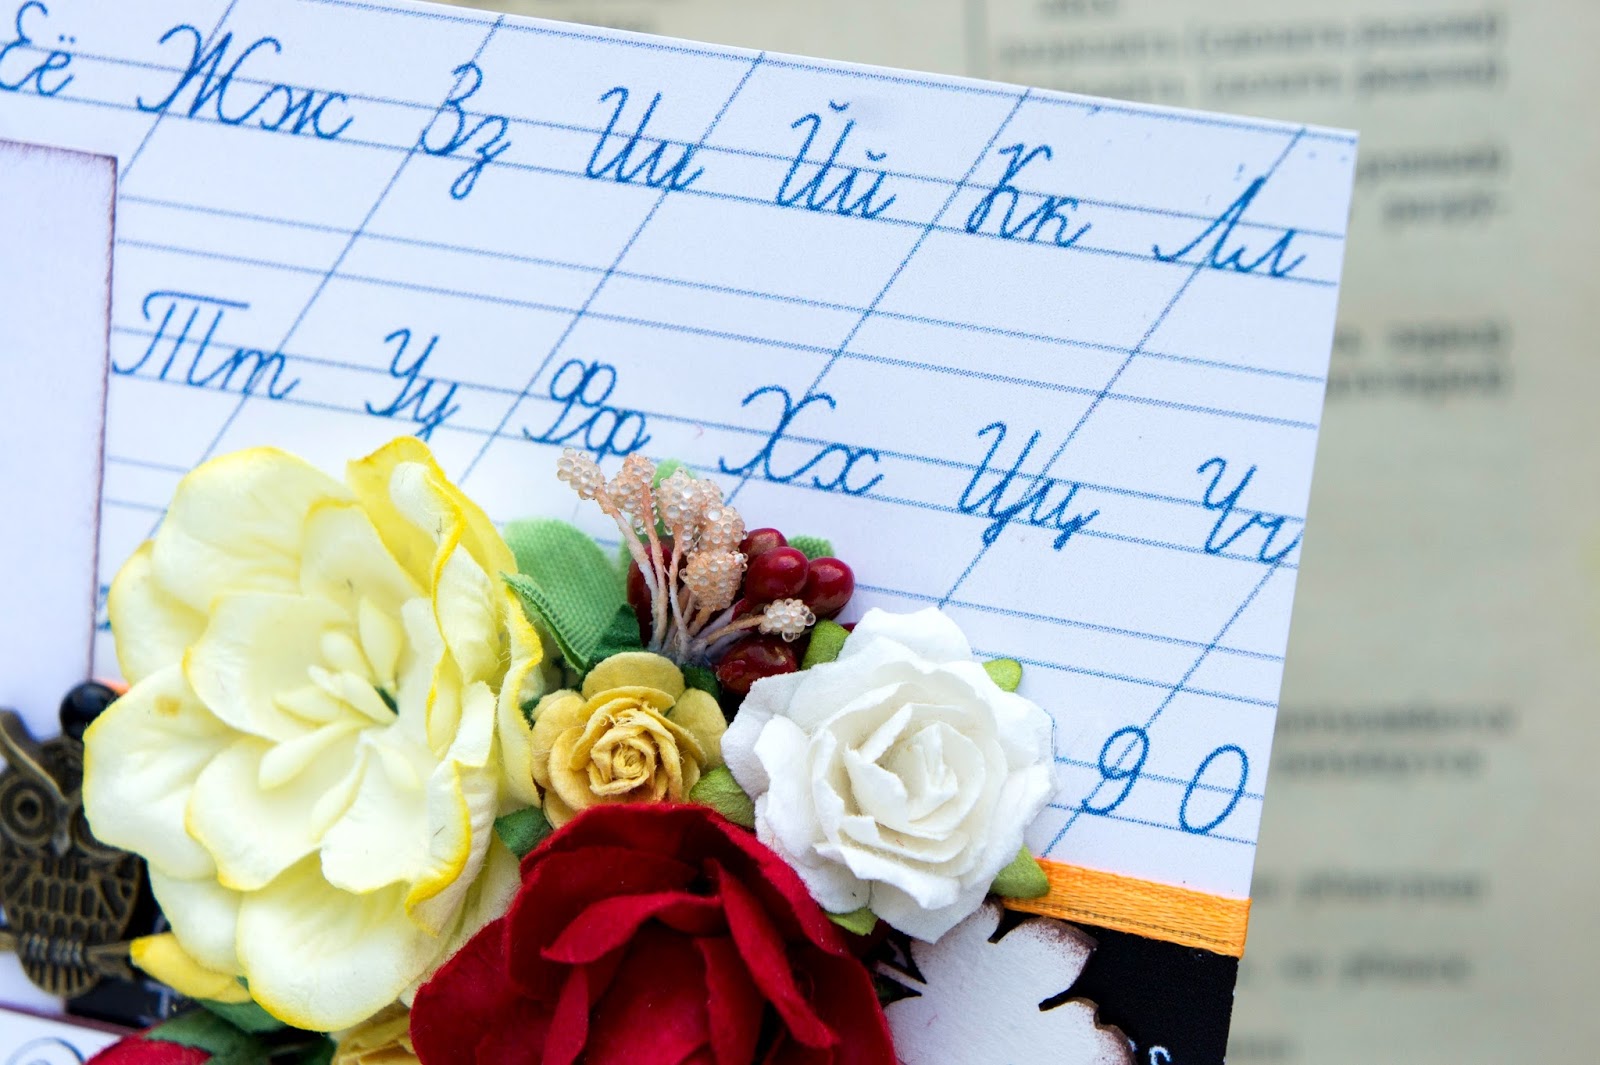 Её Жж Зз Ии Йй Кк Лл
Тт Уу Фф Хх Цц Чч
9 0